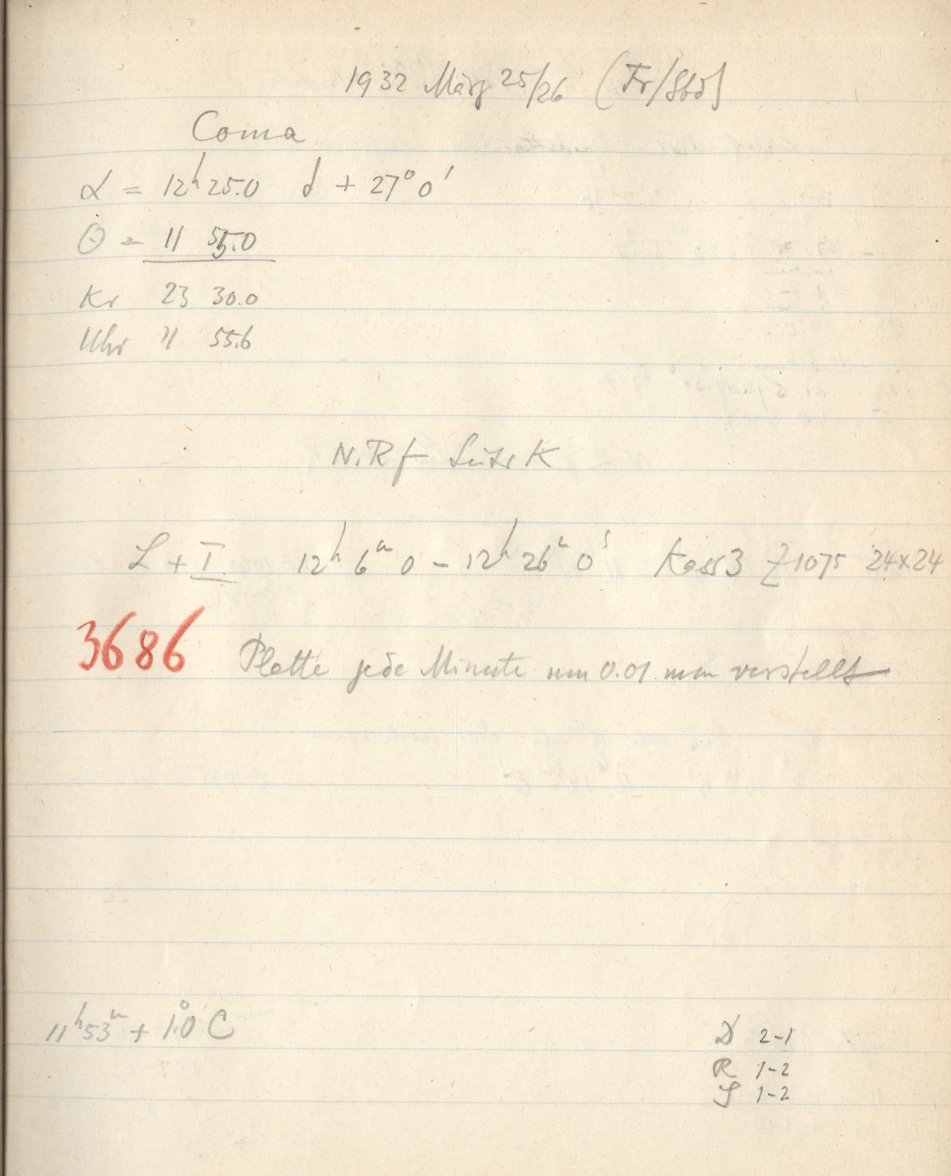 1932 März 25/26 (Fr/Sbd)
Coma
α = 12h 25.0 δ + 27° 0'
Θ = 11 55.0
Kr 23 30.0
Uhr 11 55.6
N.Rf K
L + I 12h 6m 0 – 12h 26m 0s Kass 3 Z 1075 24x24
3686 Platte jede Minute um 0.01 mm verstellt
11h 53m + 1.0° C
D 2-1
R 1-2
S 1-2